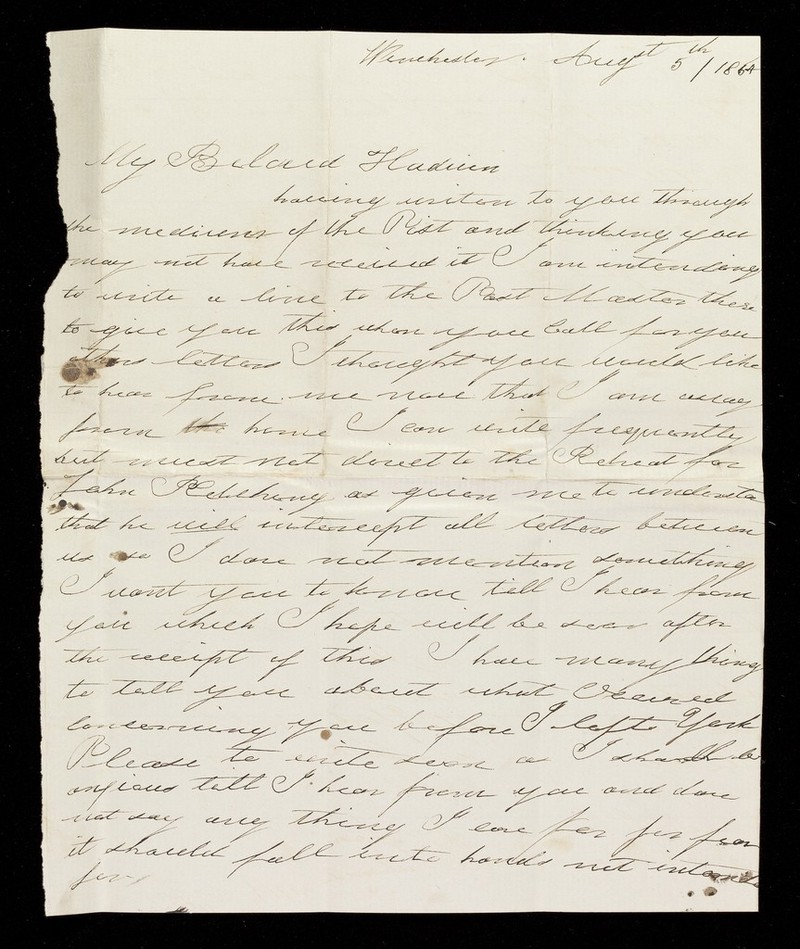 Winchester. Augst 5th / 1864
My Beloved
having writen to you through
the medium of the Post and thinking you
may not have received it I am intending
to write a line to the Post Master there
to give you this when you Call for you
others letters I thought you would like
to hear from me now that I am away
from the home I can write frequently
but must not direct to the Retreat for
John as given me to understa
that he will intercept all letters between
us so I dare not mention something
I want you to know till I hear from
you which I hope will be soon after
the receipt of this I have many thing
to tell you about what Occured
Conserning you before I left York
Please to write soon as I shall be
anxious till I hear from you and dare
not say any thing I care for for fear
it should fall into hands not intende
for